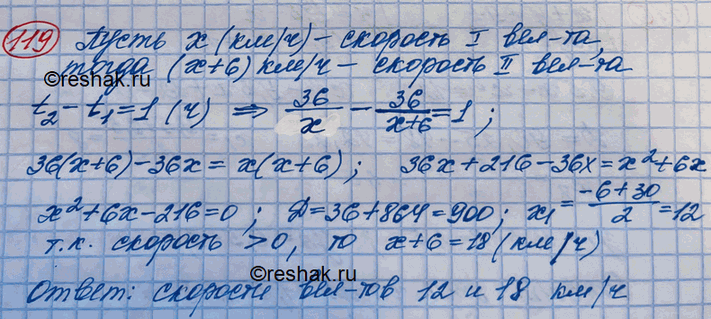 119 Пусть x (км/ч) – скорость I вел-та,
тогда (x+6) км/ч – скорость II вел-та
©reshak.ru
t₂ – t₁ = 1 (ч) ⇒ 36/x – 36/(x+6) = 1 ;
36(x+6) – 36x = x(x+6) ; 36x + 216 – 36x = x² + 6x
x² + 6x – 216 = 0 ; D = 36 + 864 = 900 ; x₁ = (-6 + 30)/2 = 12
т.к. скорость > 0, то x+6 = 18 (км/ч)
©reshak.ru
Ответ: скорости вел-тов 12 и 18 км/ч